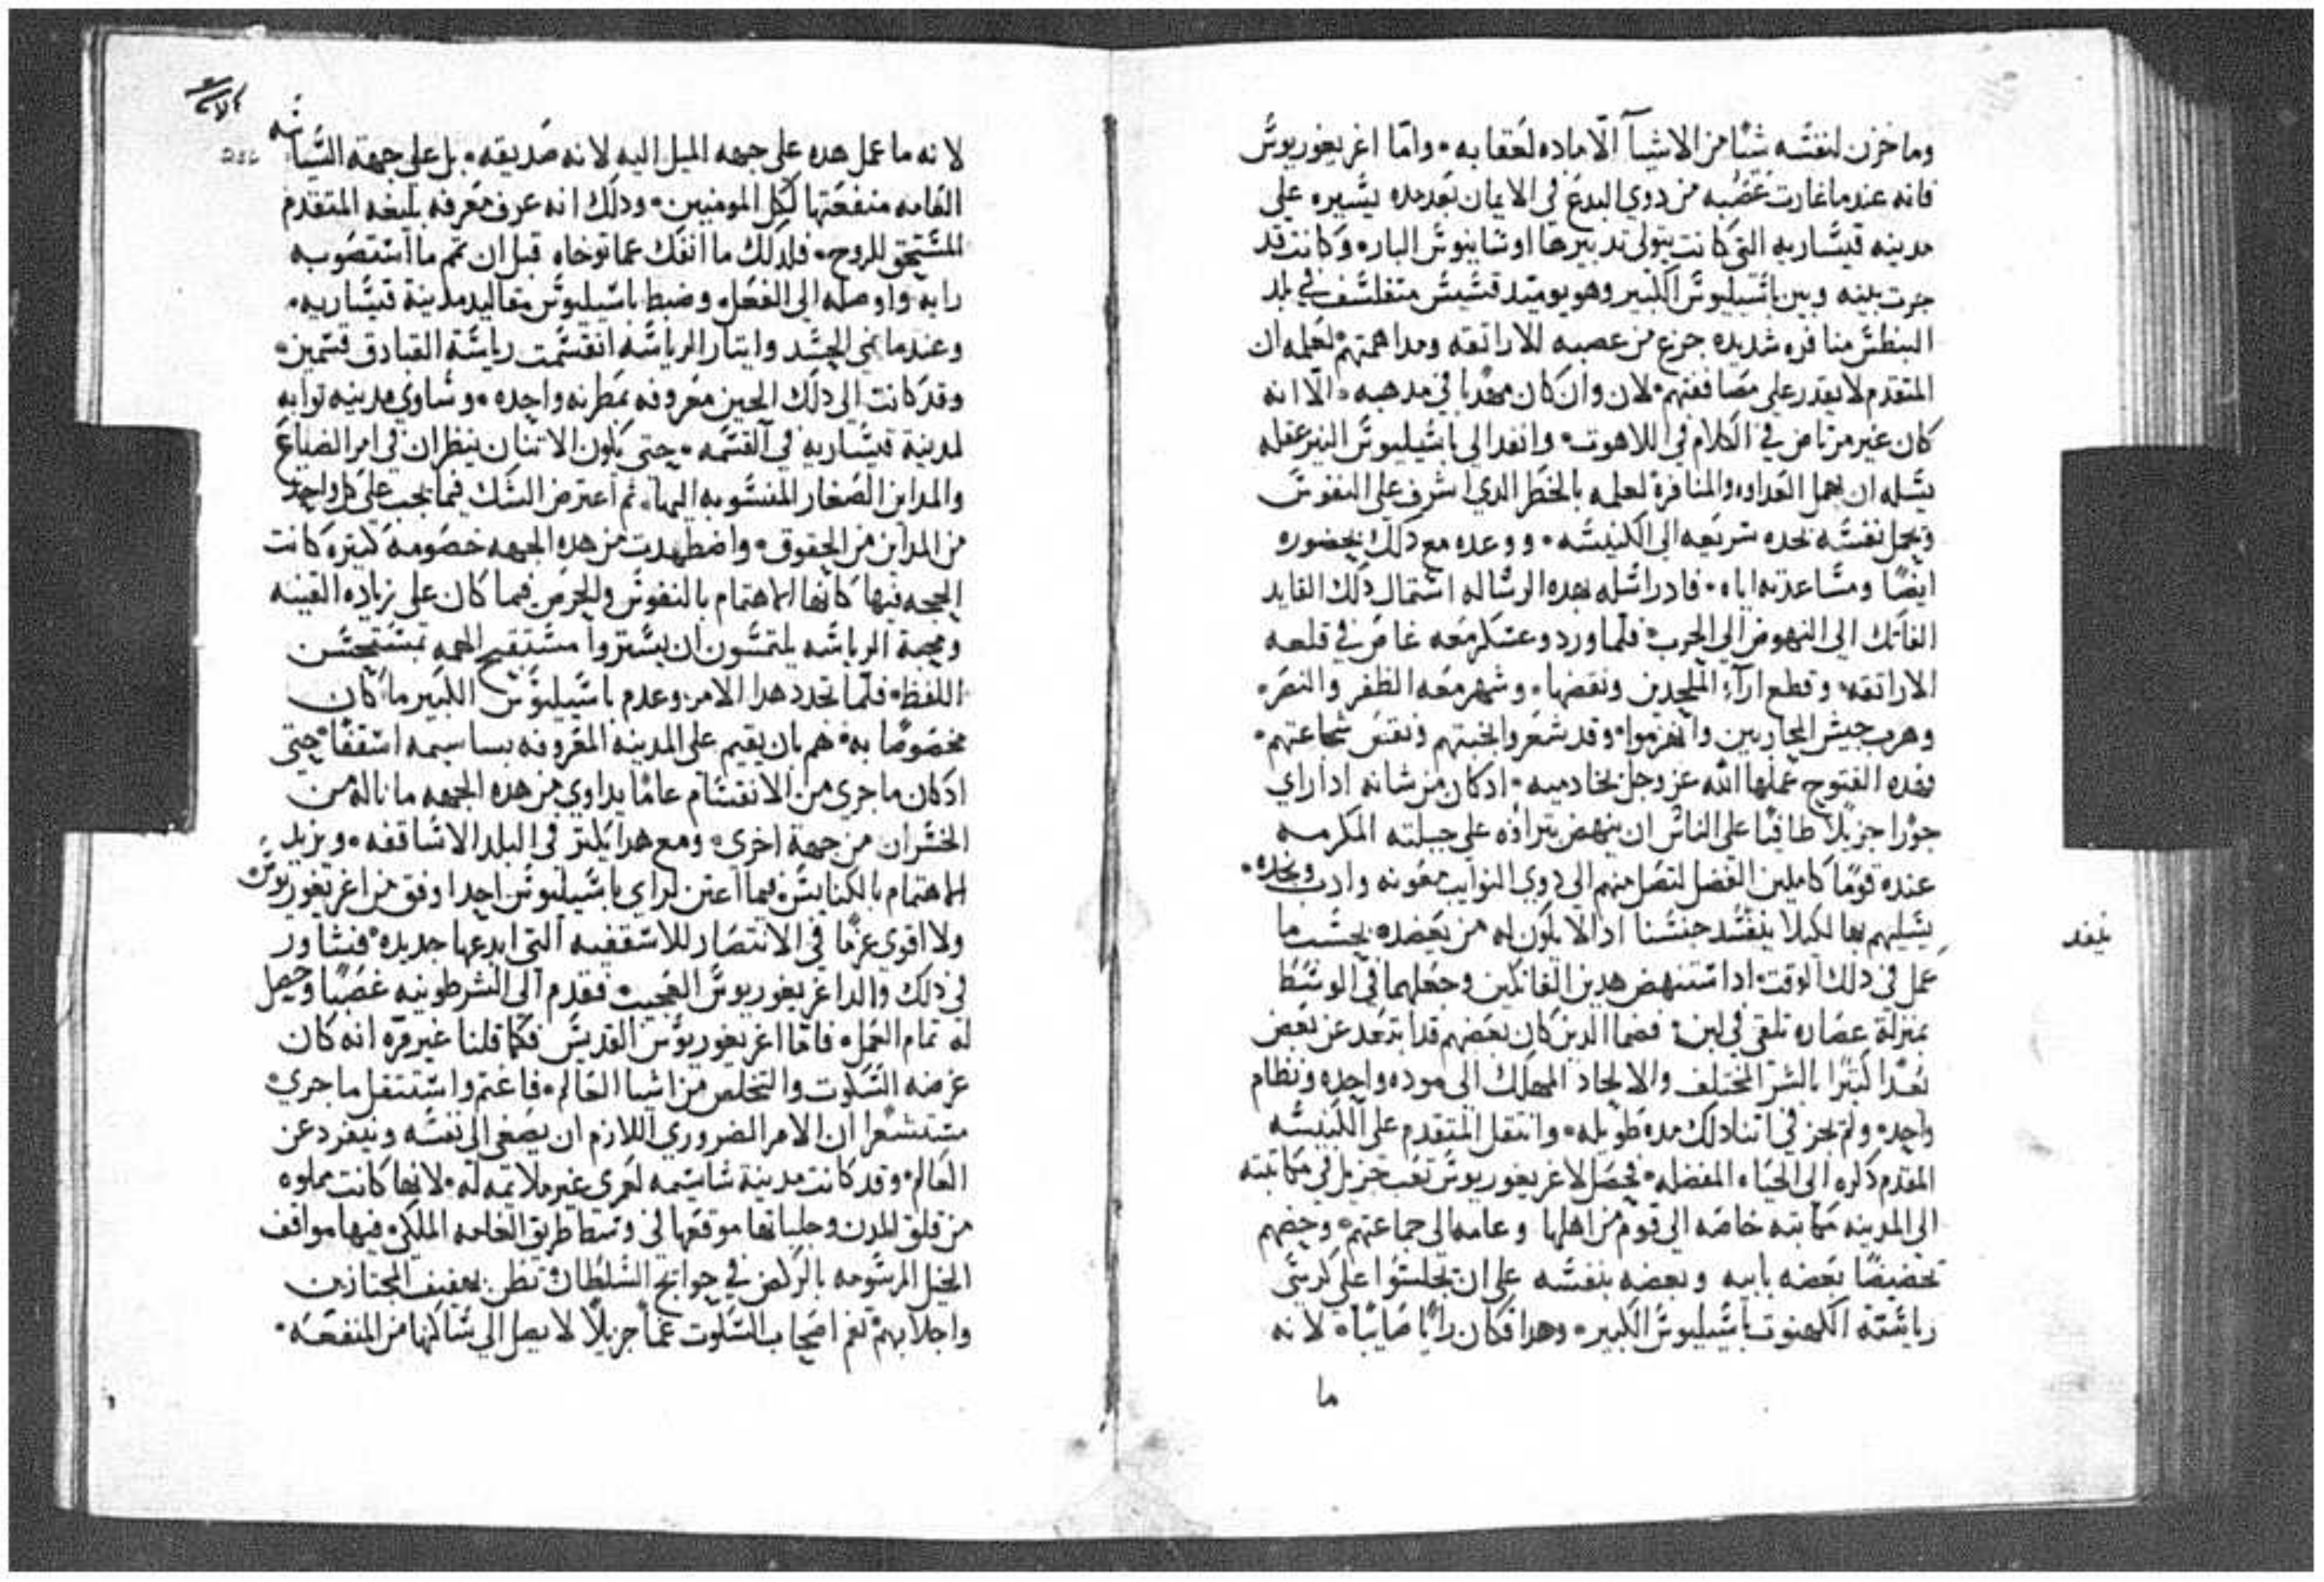 وما خزن لنفسه شيًا من الاشيآ الّا ماده لعقابه • وامّا اغريغوريوس
فانه عندما غارت عصبه من دوي البدع في الايمان بعد مده يسيره على
مدينه قيساريه التي كانت يتولى تدبيرها اوسابيوس البار • وكانت قد
جرت بينه وبين باسيليوس الكبير وهو يوميد قسيس متفلسف في بلد
البنطس منافره شديده جزع من عصبه للاراتقه ومداهمتهم لعلمه ان
المتقدم لا يقدر على مصاففتهم • لان وان كان مهدبا في مدهبه • الّا انه
كان غير مرتاض في الكلام في اللاهوت • وانفد الى باسيليوس النير عقله
يسله ان يهمل العداوه والمنافرة لعلمه بالخطر الدي اشرف على النفوس
ويجعل نفسه نجده سريعه الى الكنيسه • ووعده مع دلك بحضوره
ايضًا ومساعدته اياه • فاد راسله بهده الرساله استمال دلك القايد
الفاتك الى النهوض الى الحرب • فلما ورد وعسكر معه غاص في قلعه
الاراتقه • وقطع ارآء الملحدين ونقضها • وشهر معه الظفر والنصر •
وهرب جيش المحاربين وانهزموا • وقد شعروا بخيبتهم ونقص شجاعتهم •
وهده الفتوح عملها الله عز وجل بخادميه • اد كان من شانه ادا راي
جورًا جزيلًا طاميًا على الناس ان ينهض بتراؤه على جبلته المكرمه
عنده قومًا كاملين الفضل لتصل منهم الى دوي النوايب معونه وادب ونجده •
يسيلهم بها لكيلا ينفسد جنسنا اد الا يكون له من يعضده بحسب ما
عمل في دلك الوقت • ادا ستنهض هدين الفاتكين وجعلهما في الوسط
بمنزلة عصاره تلقى في لبن • فضما الدين كان بعضهم قد ابتعد عن بعض
بعدًا كبيرًا بالشر المختلف والالحاد المهلك الى موده واحده ونظام
واحد • ولم يجز في اتنا دلك مده طويله • وانتقل المتقدم على الكنيسه
المقدم دكره الى الحياه المفضله • فحصل لاغريغوريوس تعب جزيل في مكاتبته
الى المدينه مكاتبه خاصه الى قوم من اهلها وعامه الى جماعتهم • وحضهم
تحضيضًا بعضه بابيه وبعضه بنفسه على ان يجلسوا على كرسي
رياسة الكهنوت باسيليوس الكبير • وهدا فكان رايًا صايبًا • لانه
ما
يفقد
لانه ما عمل هده على جهه الميل اليه لانه صديقه • بل على جهة السياسه
العامه منفعتها لكل المومنين • ودلك انه عرف معرفه بليغه المتقدم
المستحق للروح • فلدلك ما انفك عما توخاه قبل ان تمم ما استصوبه
رايه واوصله الى الفعل • وضبط باسيليوس مقاليد مدينة قيساريه •
وعندما نمي الحسد وايتار الرياسه انقسمت رياسة القبادق قسمين •
وقد كانت الى دلك الحين معروفه بمطرنه واحده • وساوي مدينه توانه
لمدينة قيساريه في القسمه • حتى يكون الاتنان ينظران في امر الضياع
والمداين الصغار المنسوبه اليها • تم اعترض الشك فيما يجب على كل واحد
من المداين من الحقوق • واضطهدت من هده الجهه خصومه كبيره كانت
الحجه فيها كانها الاهتمام بالنفوس والحرص فيما كان على زياده القينه
ومحبة الرياسه يلتمسون ان يستروا مستقبح الهمه بمستحسن
اللفظ • فلما تجدد هدا الامر وعدم باسيليوس الكبير ما كان
مخصوصًا به • هم بان يقيم على المدينه المعروفه بساسيمه اسقفًا • حتى
ادكان ما جرى من الانقسام عامًا يداوي من هده الجهه ما ناله من
الخسران من جهة اخري • ومع هدا يكتر في البلد الاساقفه • ويزيد
الاهتمام بالكنايس • فيما اعتن لراي باسيليوس احدا وفق من اغريغوريوس
ولا اقوى عزمًا في الانتصار للاسقفيه التي ابدعها جديده • فشاور
في دلك والد اغريغوريوس العجيب • فقدم الى الشرطونيه غصبًا وحصل
له تمام العمل • فامّا اغريغوريوس القديس فكما قلنا غير مره انه كان
غرضه السكوت والتخلص من اشيا العالم • فاغتم واستتقل ما جري •
مستشعرًا ان الامر الضروري اللازم ان يصغى الى نفسه وينفرد عن
العالم • وقد كانت مدينة ساسيمه لعمري غير ملايمه له • لانها كانت مملوه
من قلق المدن وجلباتها موقعها في وسط طريق العامه الملكي • فيها مواقف
الخيل المرسومه بالركض في حوايج السلطان تظن بحفيف المجتازين
واجلابهم تغم اصحاب السكوت غماً جزيلًا لا يصل الى ساكنها من المنفعه •